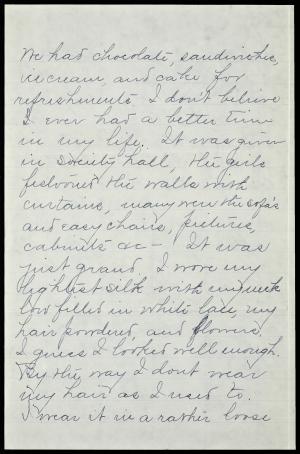 We had chocolate, sandwiches,
ice cream, and cake for
refreshments I don't believe
I ever had a better time
in my life. It was given
in Society hall, the girls
festooned the walls with
curtains, many were the sofa's
and easy chairs, pictures,
cabinets &c - It was
just grand, I wore my
lightest silk with my neck
low filled in white lace, my
hair powdered, and flowers
I guess I looked well enough.
By the way I dont wear
my hair as I used to.
I wear it in a rather loose